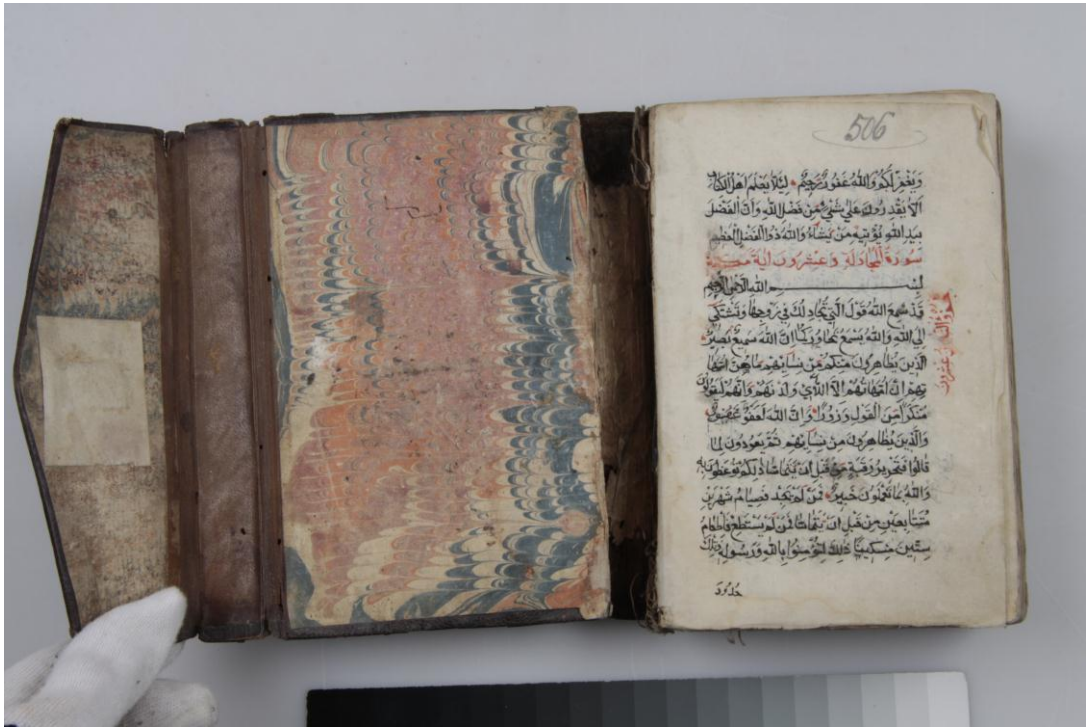 506
وَيَغْفِرْ لَكُمْ وَاللّٰهُ غَفُورٌ رَحِيمٌ لِئَلَّا يَعْلَمَ اَهْلُ الْكِتَابِ
اَلَّا يَقْدِرُونَ عَلٰى شَيْءٍ مِنْ فَضْلِ اللّٰهِ وَاَنَّ الْفَضْلَ
بِيَدِ اللّٰهِ يُؤْتِيهِ مَنْ يَشَاءُ وَاللّٰهُ ذُو الْفَضْلِ الْعَظِيمِ
سورة المجادلة وعشرون اية
بسم الله الرحمن الرحيم
قَدْ سَمِعَ اللّٰهُ قَوْلَ الَّتِي تُجَادِلُكَ فِي زَوْجِهَا وَتَشْتَكِي
اِلَى اللّٰهِ وَاللّٰهُ يَسْمَعُ تَحَاوُرَكُمَا اِنَّ اللّٰهَ سَمِيعٌ بَصِيرٌ
اَلَّذِينَ يُظَاهِرُونَ مِنْكُمْ مِنْ نِسَائِهِمْ مَا هُنَّ اُمَّهَا
تِهِمْ اِنْ اُمَّهَاتُهُمْ اِلَّا اللَّائِي وَلَدْنَهُمْ وَاِنَّهُمْ لَيَقُولُونَ
مُنْكَرًا مِنَ الْقَوْلِ وَزُورًا وَاِنَّ اللّٰهَ لَعَفُوٌّ غَفُورٌ
وَالَّذِينَ يُظَاهِرُونَ مِنْ نِسَائِهِمْ ثُمَّ يَعُودُونَ لِمَا
قَالُوا فَتَحْرِيرُ رَقَبَةٍ مِنْ قَبْلِ اَنْ يَتَمَاسَّا ذٰلِكُمْ تُوعَظُونَ بِهِ
وَاللّٰهُ بِمَا تَعْمَلُونَ خَبِيرٌ فَمَنْ لَمْ يَجِدْ فَصِيَامُ شَهْرَيْنِ
مُتَتَابِعَيْنِ مِنْ قَبْلِ اَنْ يَتَمَاسَّا فَمَنْ لَمْ يَسْتَطِعْ فَاِطْعَامُ
سِتِّينَ مِسْكِينًا ذٰلِكَ لِتُؤْمِنُوا بِاللّٰهِ وَرَسُولِهِ وَتِلْكَ
حُدُودُ